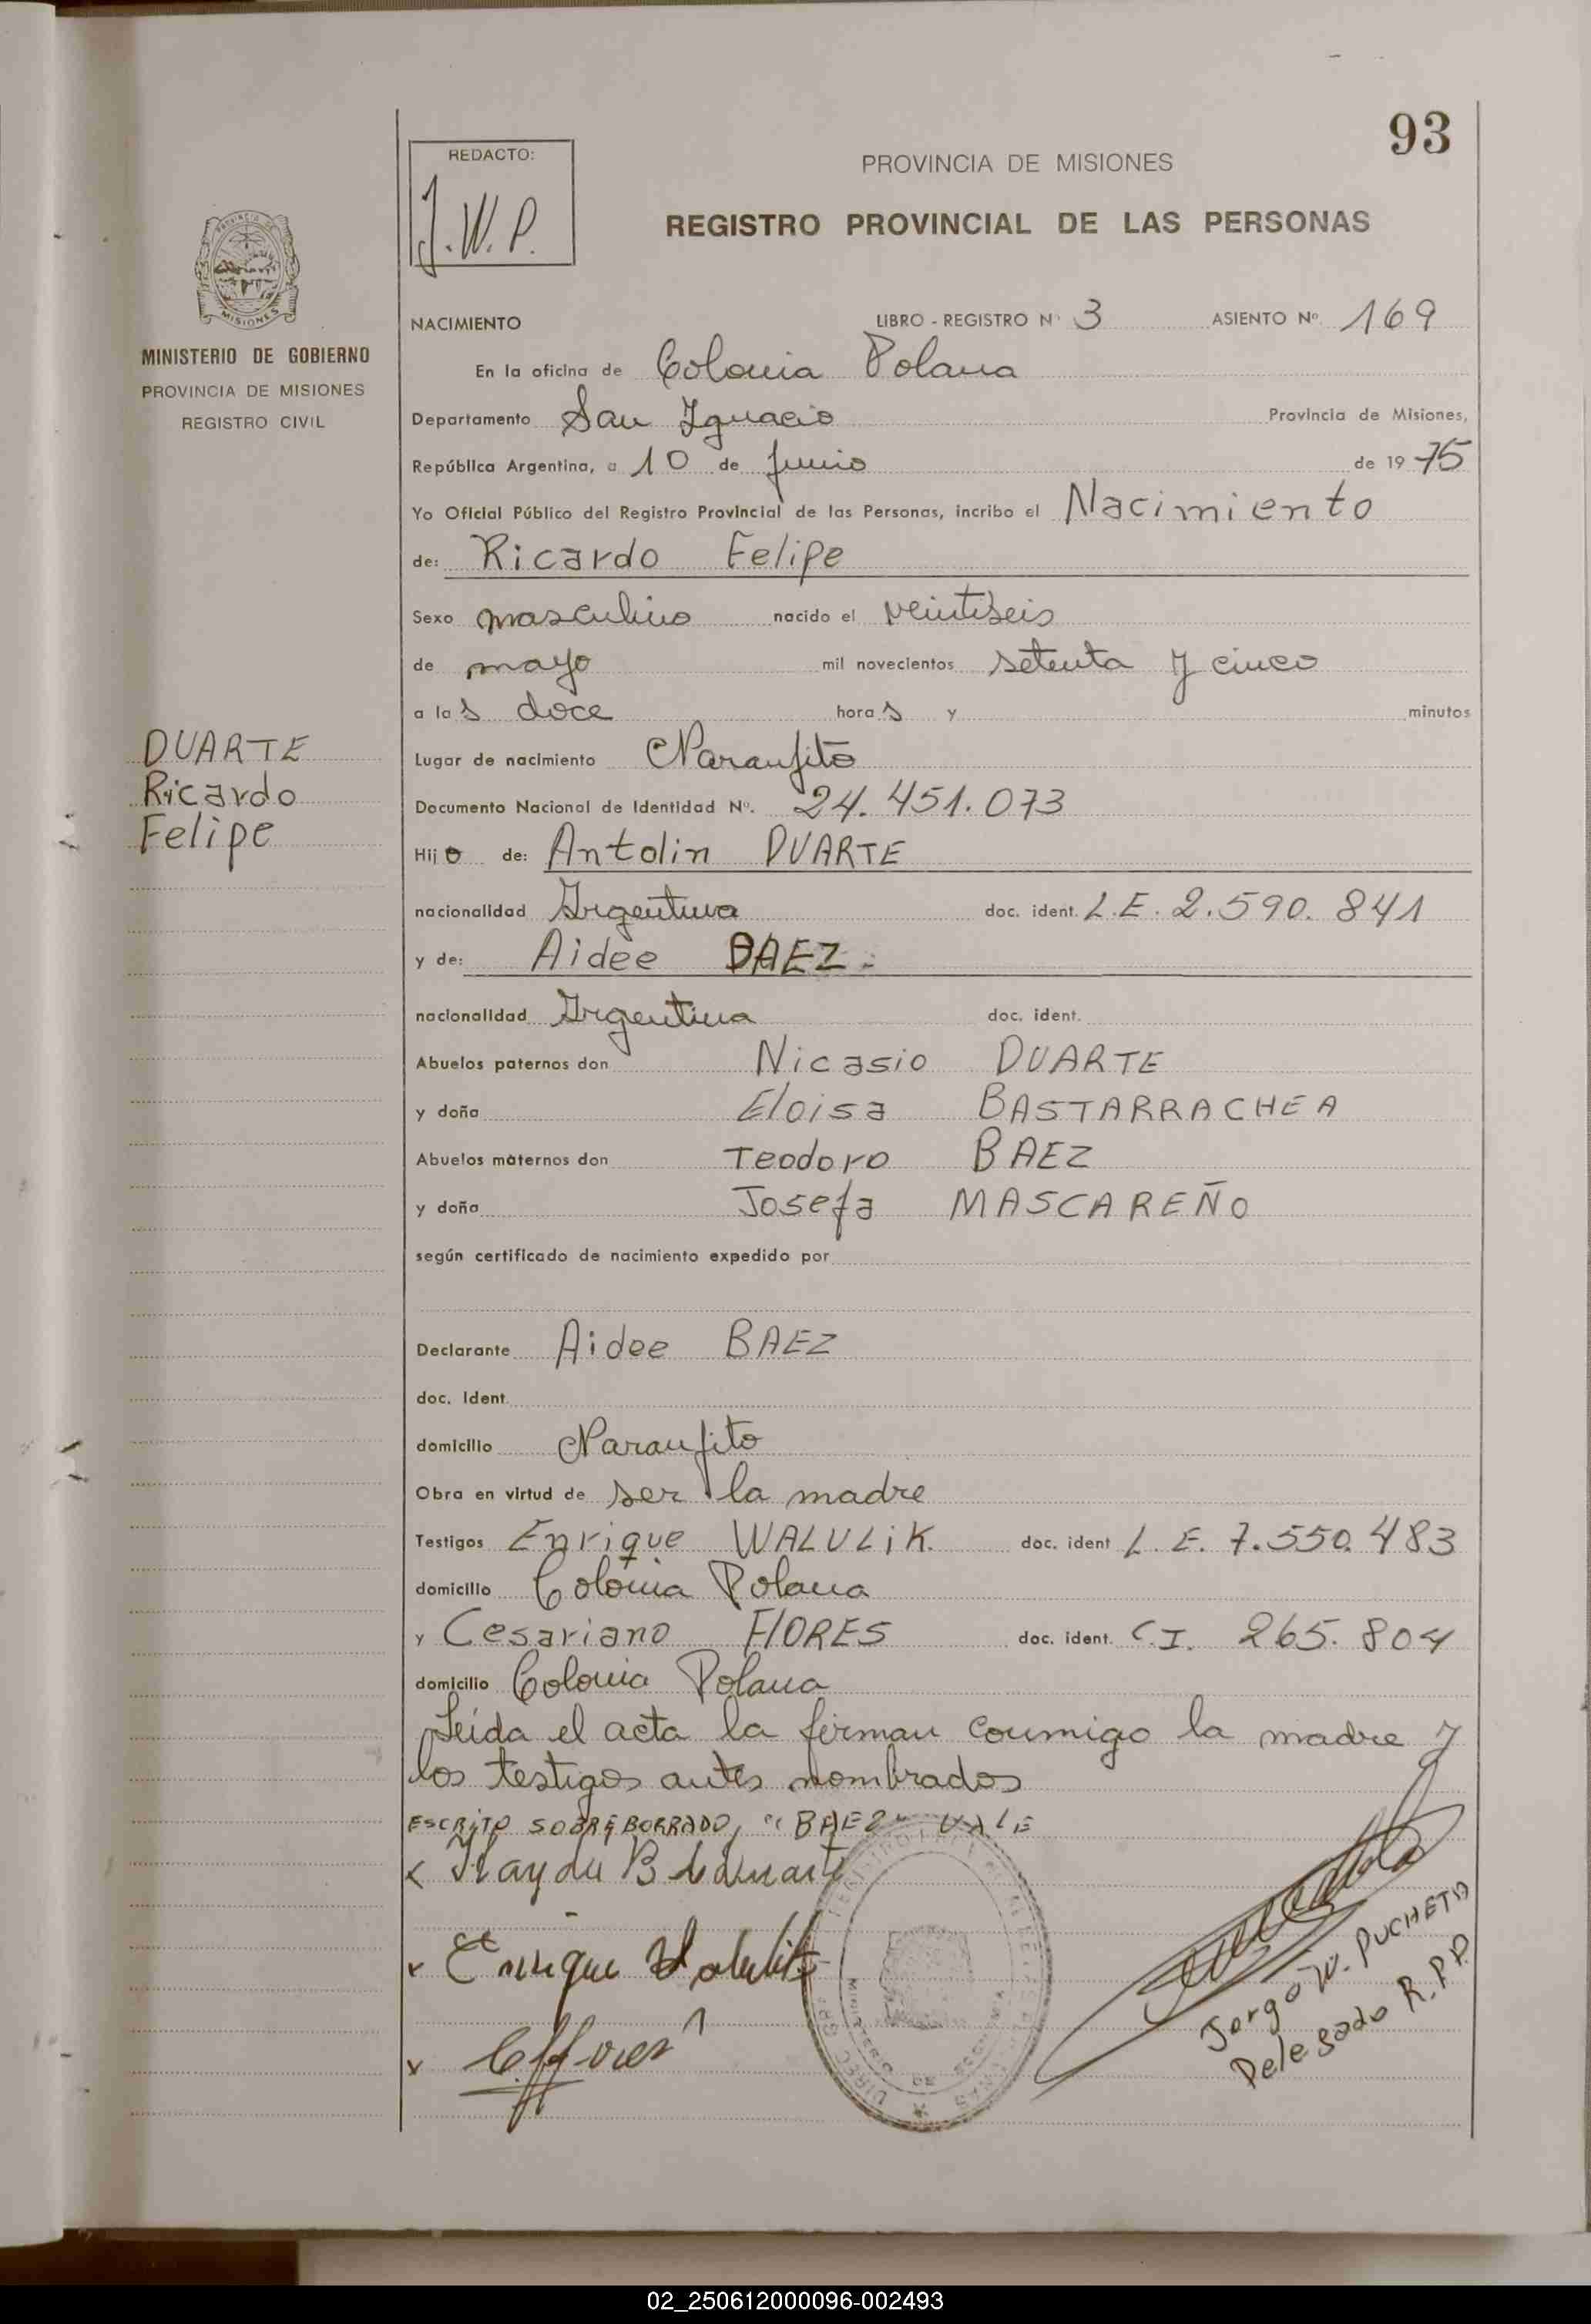 93
REDACTO:
J.W.P.
PROVINCIA DE MISIONES
REGISTRO PROVINCIAL DE LAS PERSONAS
MISIONES
MINISTERIO DE GOBIERNO
PROVINCIA DE MISIONES
REGISTRO CIVIL
NACIMIENTO LIBRO - REGISTRO Nº 3 ASIENTO Nº 169
En la oficina de Colonia Polana
Departamento San Ignacio Provincia de Misiones,
República Argentina, a 10 de junio de 1975
Yo Oficial Público del Registro Provincial de las Personas, incribo el Nacimiento
de: Ricardo Felipe
Sexo masculino nacido el veintiseis
de mayo mil novecientos setenta y cinco
a las doce horas y minutos
DUARTE
Ricardo
Felipe
Lugar de nacimiento Naranjito
Documento Nacional de Identidad Nº. 24.451.073
Hijo de: Antolin DUARTE
nacionalidad Argentina doc. ident. L.E. 2.590.841
y de: Aidee BAEZ.-
nacionalidad Argentina doc. ident.
Abuelos paternos don Nicasio DUARTE
y doña Eloisa BASTARRACHEA
Abuelos maternos don Teodoro BAEZ
y doña Josefa MASCAREÑO
según certificado de nacimiento expedido por
Declarante Aidee BAEZ
doc. Ident.
domicilio Naranjito
Obra en virtud de ser la madre
Testigos Enrique WALULIK. doc. ident L.E. 7.550.483
domicilio Colonia Polana
y Cesariano FLORES doc. ident. C.I. 265.804
domicilio Colonia Polana
Leída el acta la firman conmigo la madre y
los testigos antes nombrados
ESCRITO SOBREBORRADO, "BAEZ" VALE
x Haydu B
x Enrique Walulik
x CFflores
Jorge W. PUCHETA
Delegado R.P.P.
02_250612000096-002493